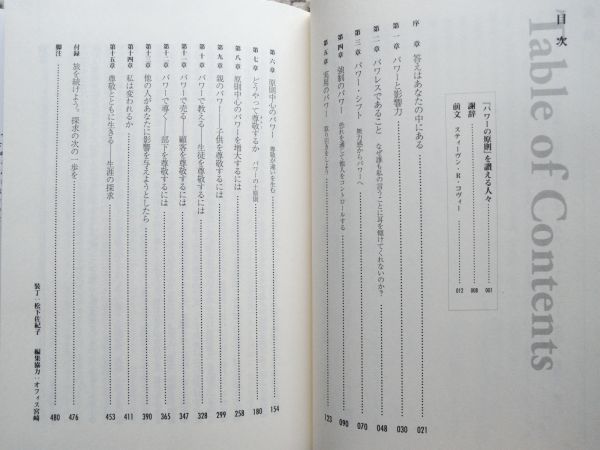 Table of Contents
目次
『パワーの原則』を讃える人々 001
謝辞 008
前文 スティーヴン・R・コヴィー 012
序章 答えはあなたの中にある 021
第一章 パワーと影響力 030
第二章 パワーレスであること なぜ誰も私の言うことに耳を傾けてくれないのか? 048
第三章 パワー・シフト 無力感からパワーへ 070
第四章 強制のパワー 恐れを通して他人をコントロールする 090
第五章 実用のパワー 取り引きをしよう 123
第六章 原則中心のパワー 尊敬が違いを生む 154
第七章 どうやって尊敬するか パワーの十原則 180
第八章 原則中心のパワーを増大するには 258
第九章 親のパワー──子供を尊敬するには 299
第十章 パワーで教える──生徒を尊敬するには 328
第十一章 パワーで売る──顧客を尊敬するには 347
第十二章 パワーで導く──部下を尊敬するには 365
第十三章 他の人があなたに影響を与えようとしたら 390
第十四章 私は変われるか 411
第十五章 尊敬とともに生きる──生涯の探求 453
付録 旅を続けよう。探求の次の一歩を 476
脚注 480
装丁:松下佐紀子 編集協力:オフィス宮崎